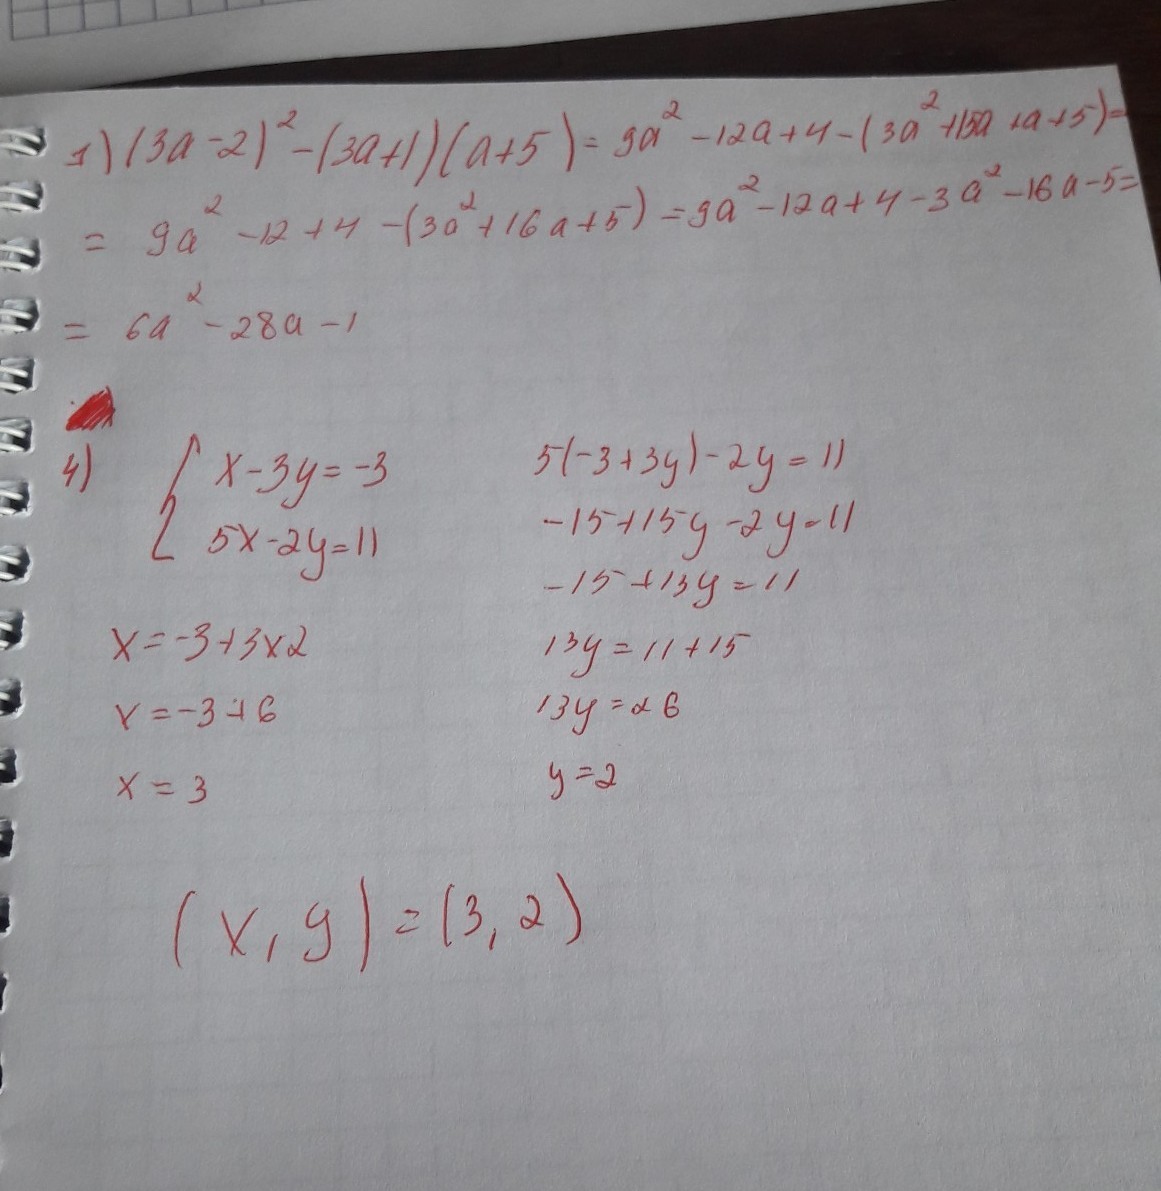 1) (3a-2)² - (3a+1)(a+5) = 9a² - 12a + 4 - (3a² + 15a + a + 5) =
= 9a² - 12 + 4 - (3a² + 16a + 5) = 9a² - 12a + 4 - 3a² - 16a - 5 =
= 6a² - 28a - 1
4) { x - 3y = -3
5x - 2y = 11
x = -3 + 3x2
x = -3 + 6
x = 3
5(-3 + 3y) - 2y = 11
-15 + 15y - 2y = 11
-15 + 13y = 11
13y = 11 + 15
13y = 26
y = 2
(x, y) = (3, 2)